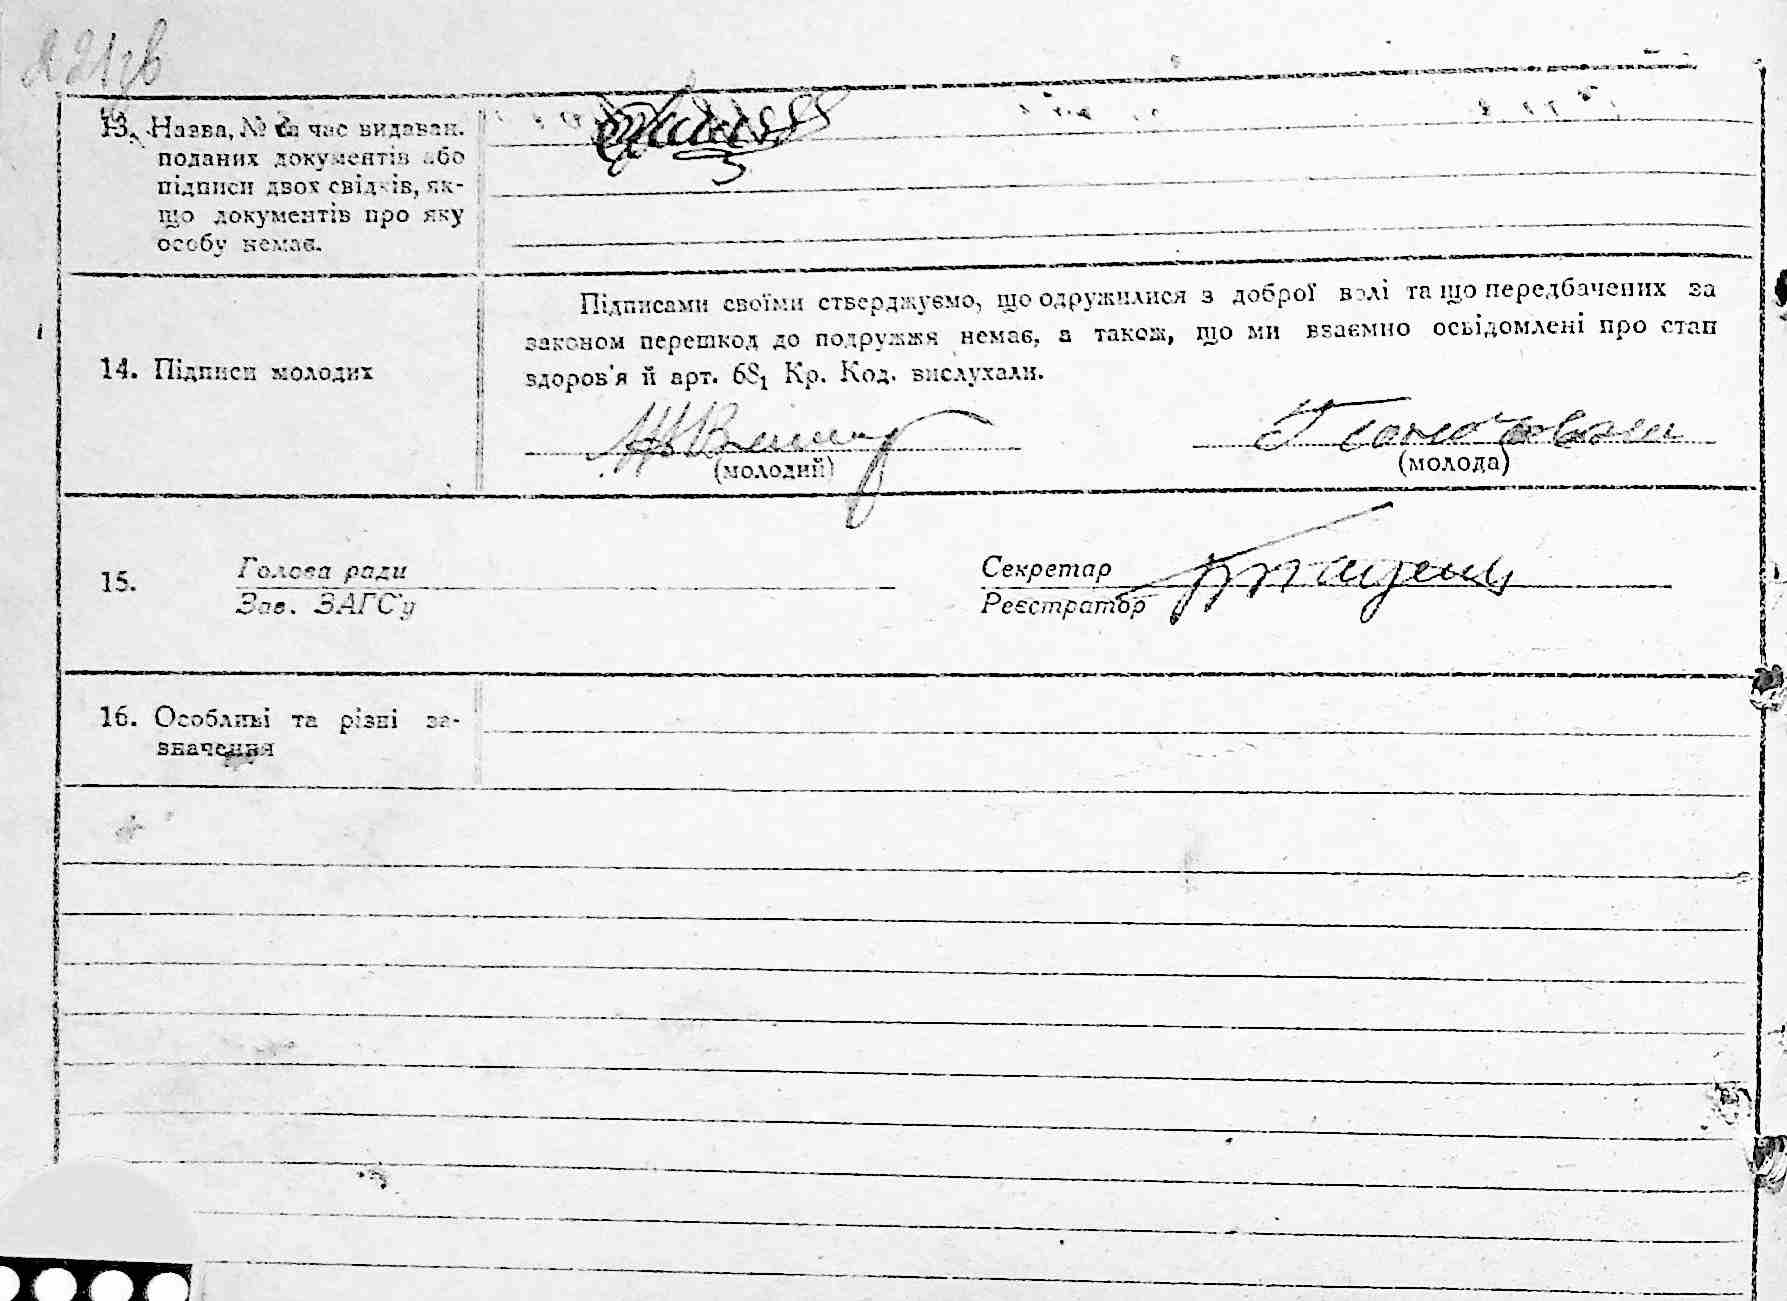 221зв
13. Назва, № та час видаван.
поданих документів або
підписи двох свідків, як-
що документів про яку
особу немає.
Підписами своїми стверджуємо, що одружилися з доброї волі та що передбачених за
законом перешкод до подружжя немає, а також, що ми взаємно освідомлені про стан
14. Підписи молодих
здоров'я й арт. 68₁ Кр. Код. вислухали.
(молодий) (молода)
15. Голова ради Секретар
Зав. ЗАГС'у Реєстратор
16. Особливі та різні за-
значення